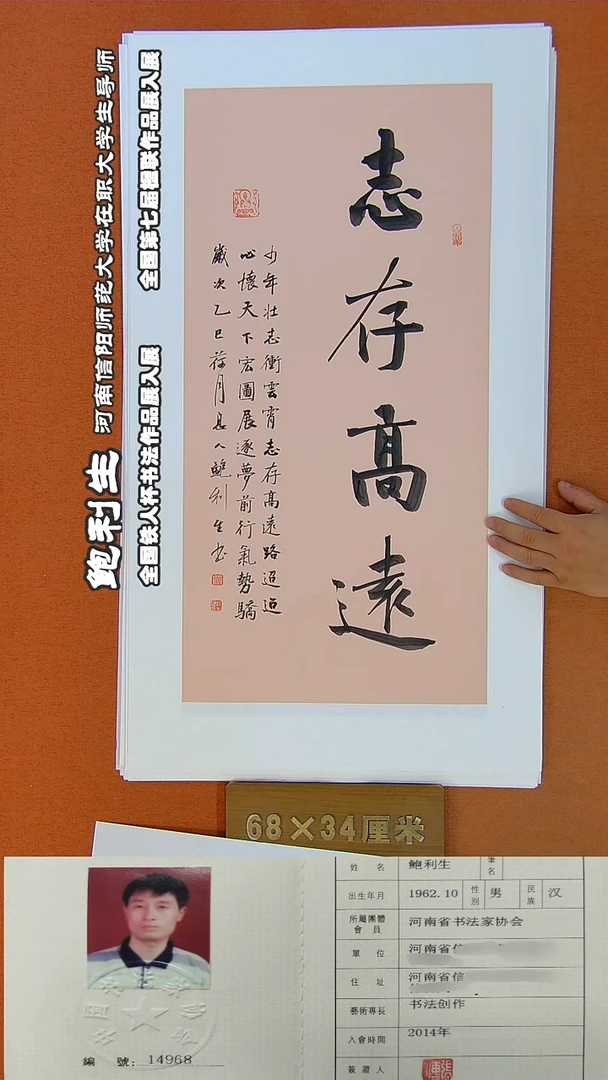 志存高遠
少年壮志衝雲霄志存高遠路迢迢
心懷天下宏圖展逐夢前行氣勢驕
歲次乙巳荷月息人鮑利生书
鲍利生 河南信阳师范大学在职大学生导师
全国铁人杯书法作品展入展 全国第七届楹联作品展入展
68×34厘米
姓名 鲍利生 筆名
出生年月 1962.10 性別 男 民族 汉
所屬團體會員 河南省书法家协会
單位 河南省信
住址 河南省信
藝術專長 书法创作
入會時間 2014年
簽證人
編號：14968